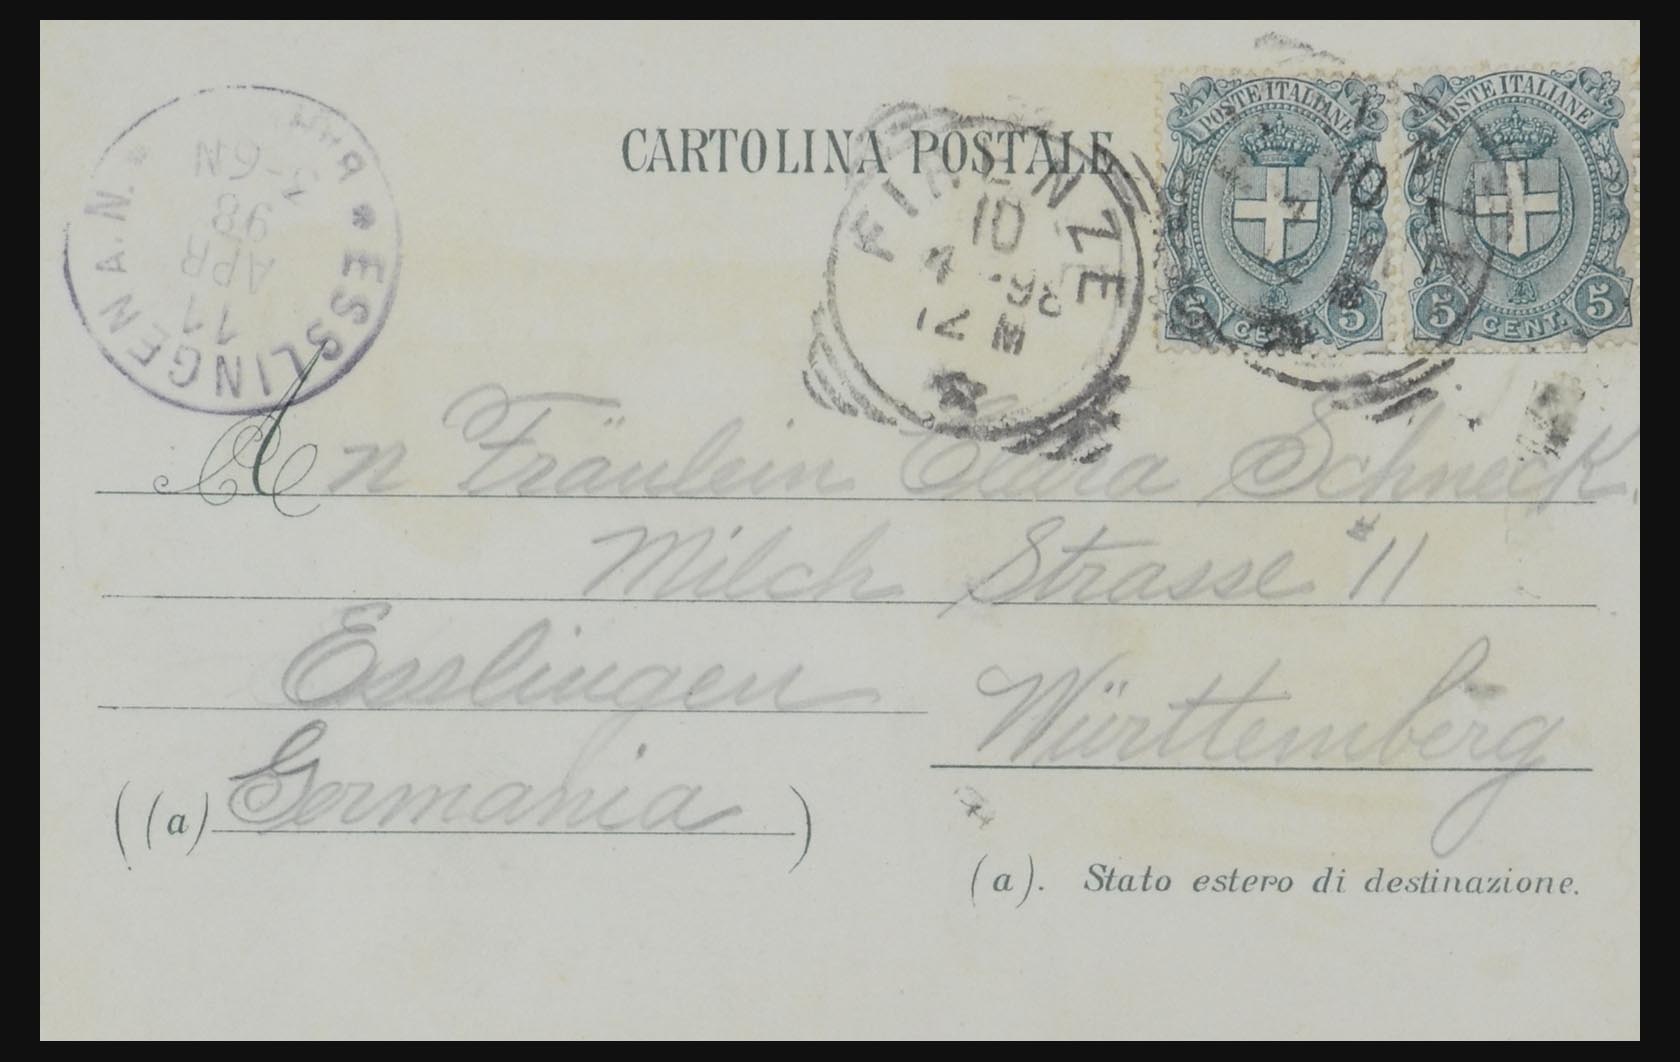 CARTOLINA POSTALE
POSTE ITALIANE
5 CENT. 5
POSTE ITALIANE
5 CENT. 5
FIRENZE
10
4 -98
12 M
10
* ESSLINGEN A.N. *
11
APR
98
5-6N
An Fräulein Clara Schneck.
Milch Strasse #11
Esslingen Württemberg
((a) Germania)
(a). Stato estero di destinazione.